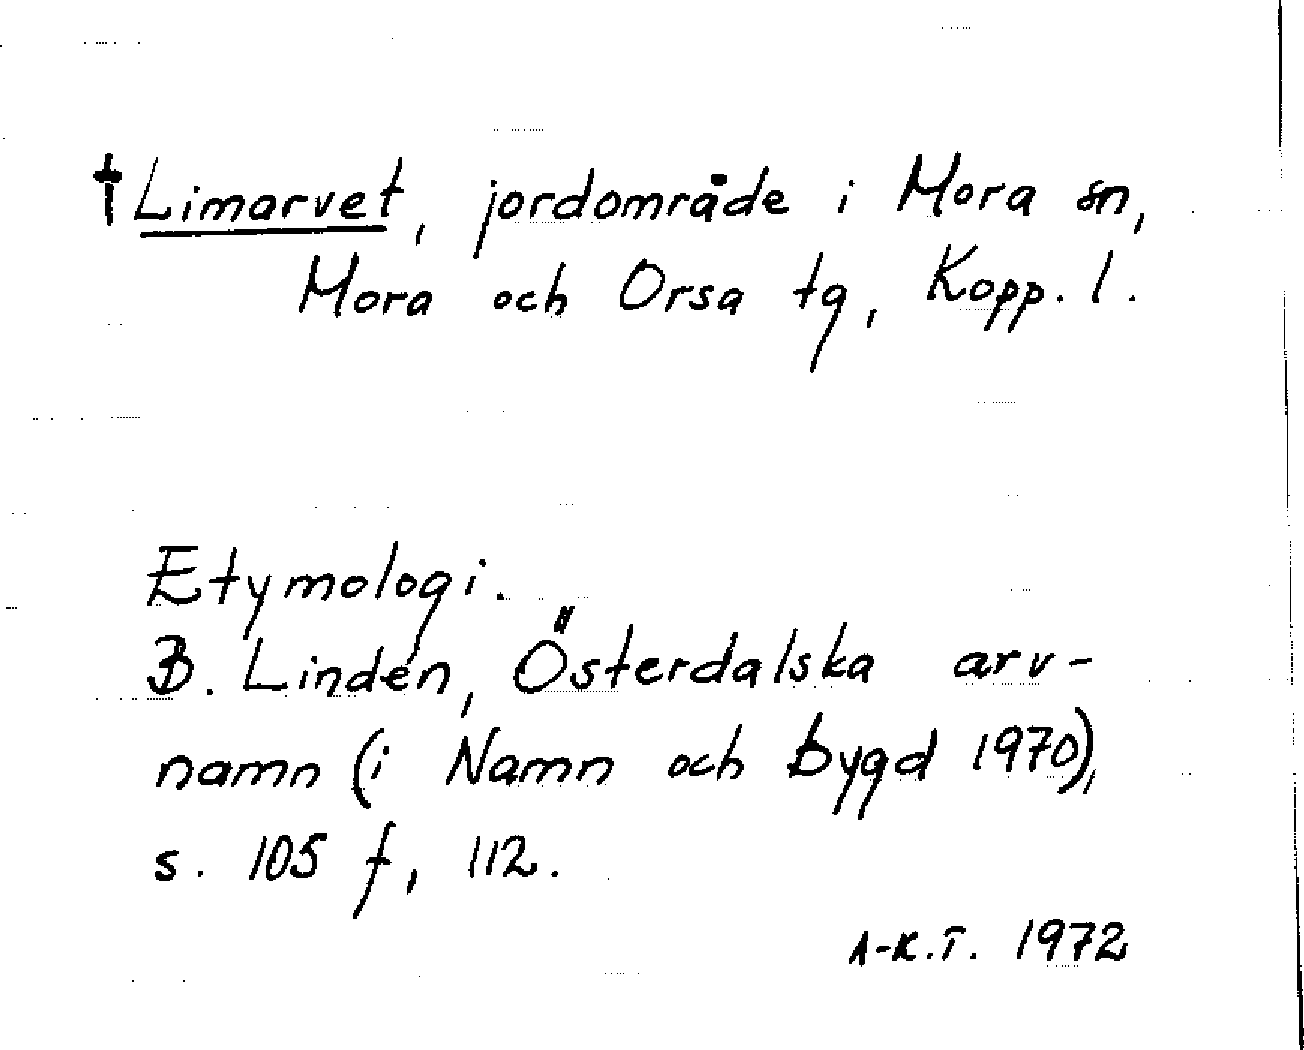 †Limarvet, jordområde i Mora sn,
Mora och Orsa tg, Kopp. l.
Etymologi.
B. Lindén, Österdalska arv-
namn (i Namn och bygd 1970),
s. 105 f, 112.
A-K.T. 1972